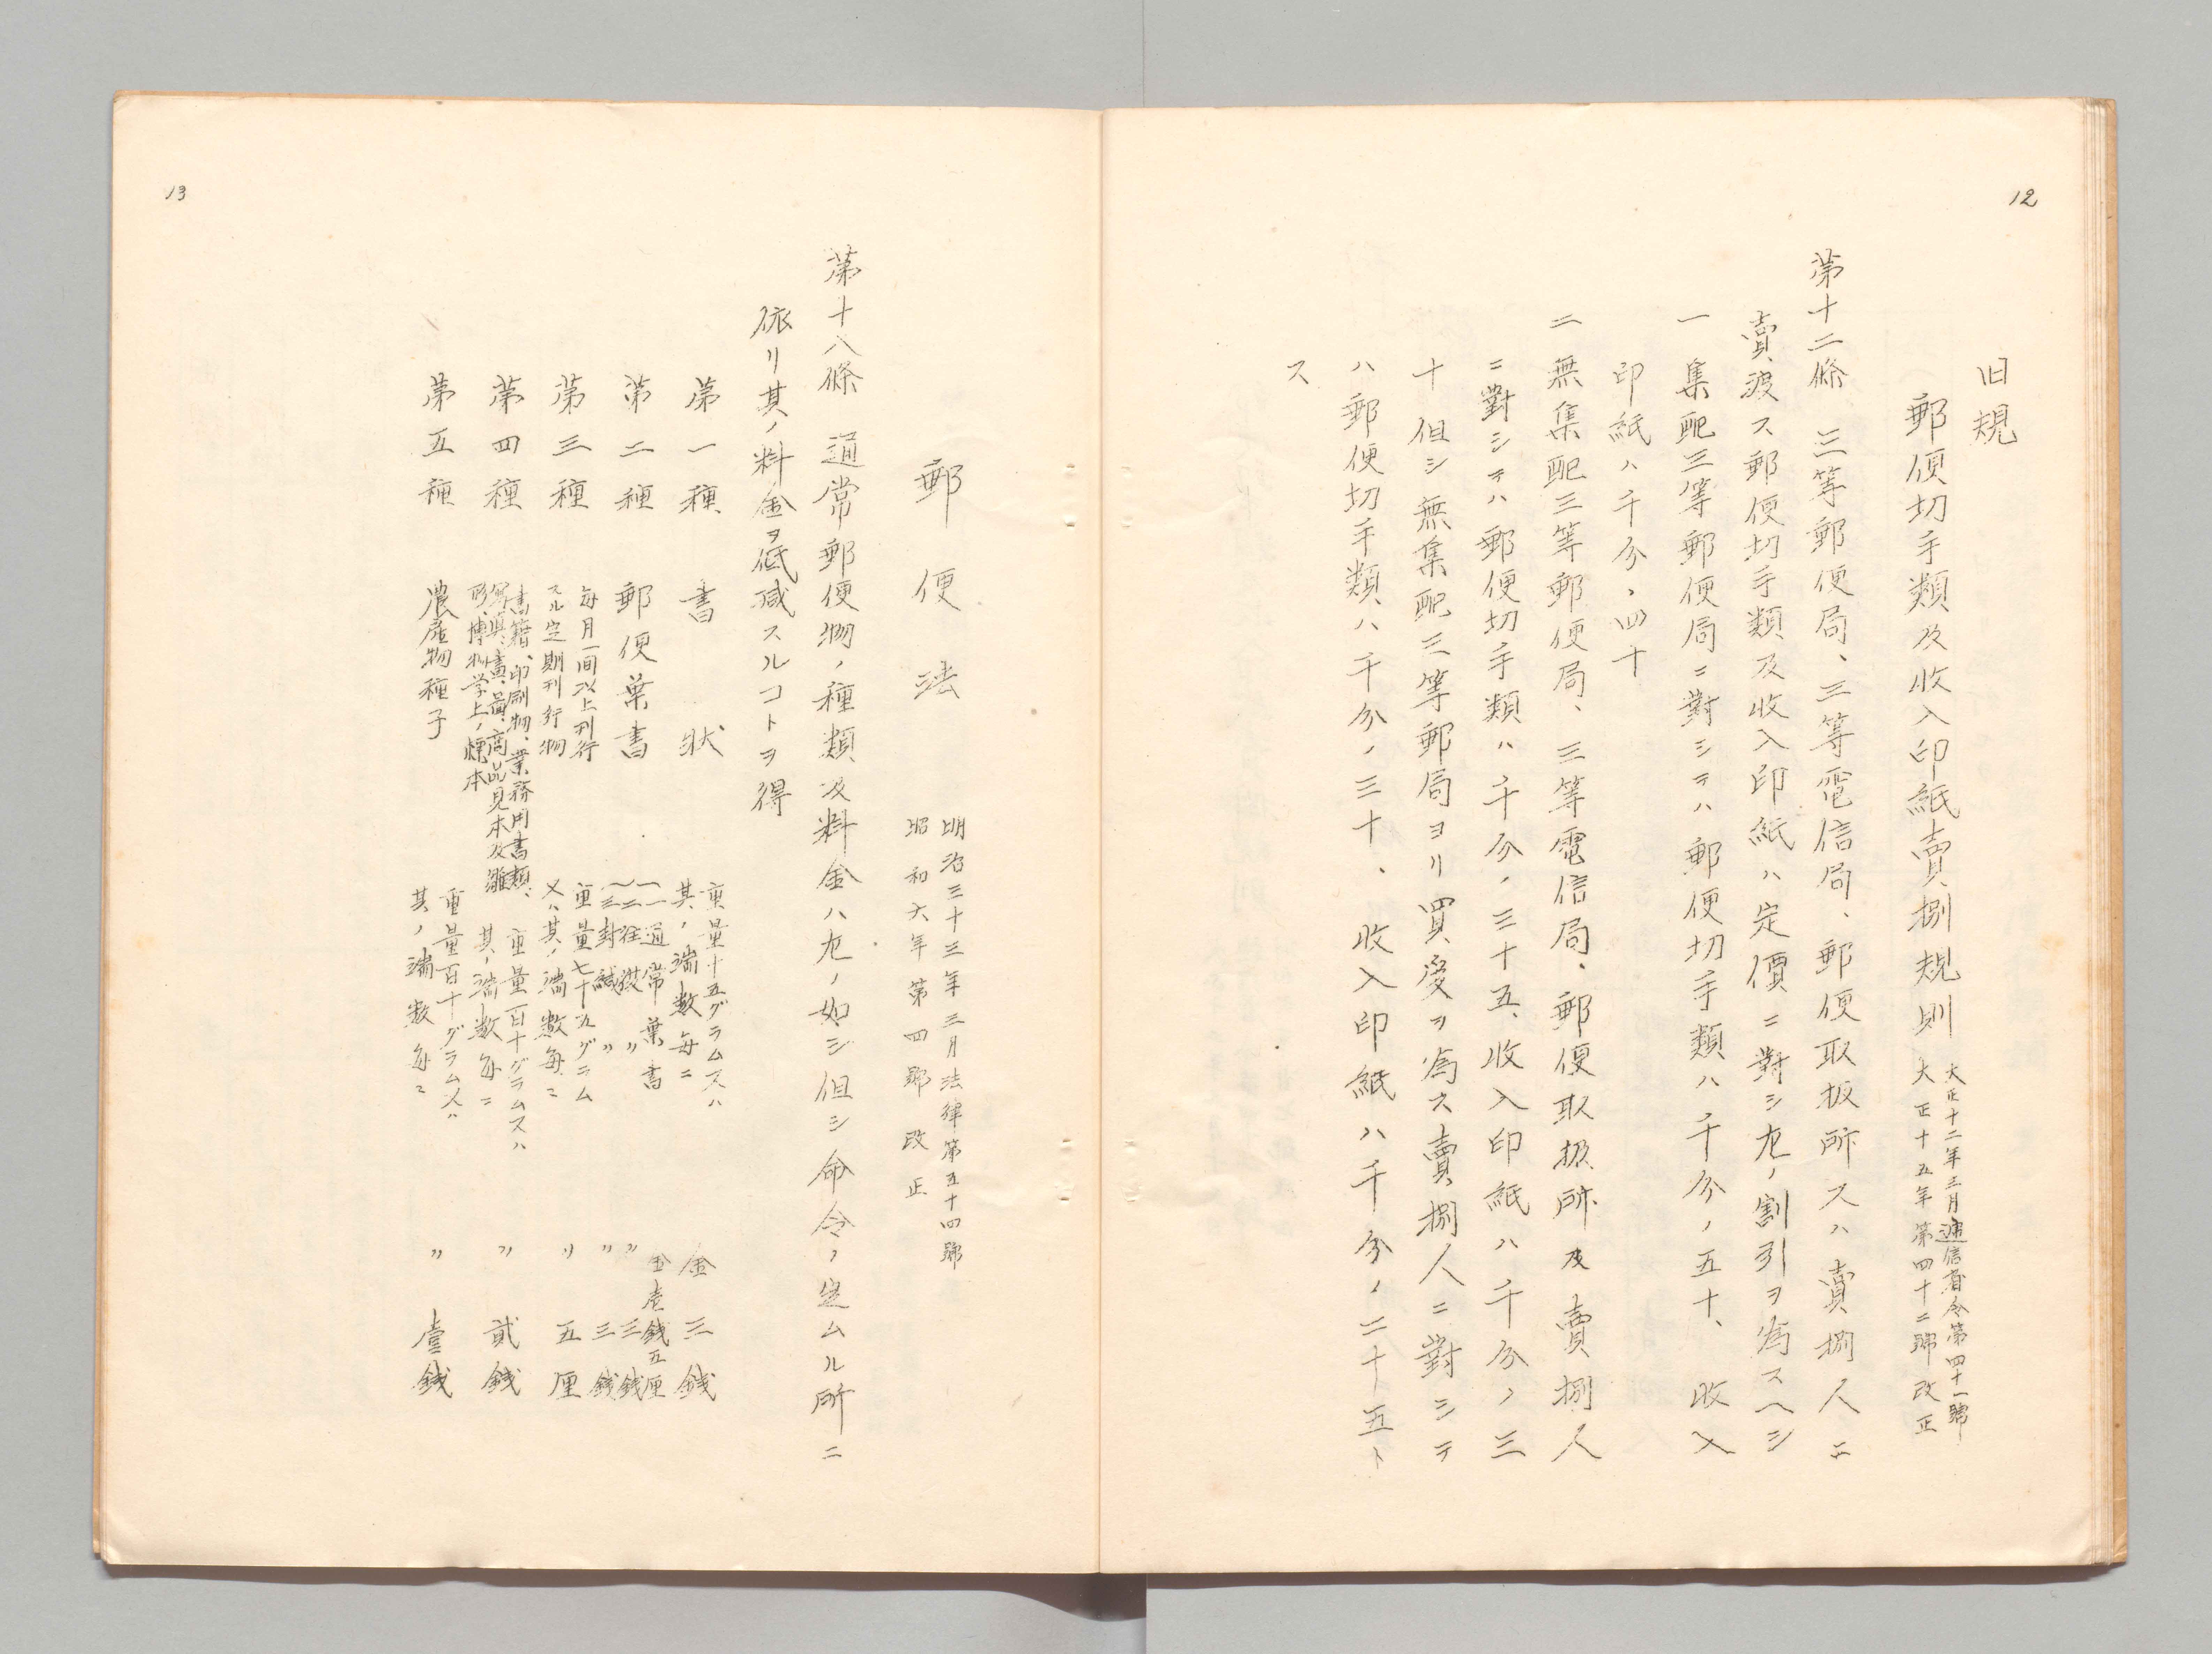 12
旧規
郵便切手類及收入印紙賣捌規則
大正十二年三月逓信省令第四十一號
大正十五年第四十二號改正
第十二條 三等郵便局、三等電信局、郵便取扱所又ハ賣捌人ニ
賣渡ス郵便切手類及收入印紙ハ定價ニ對シ左ノ割引ヲ為スヘシ
一 集配三等郵便局ニ對シテハ郵便切手類ハ千分ノ五十、收入
印紙ハ千分ノ四十
二 無集配三等郵便局、三等電信局、郵便取扱所及賣捌人
ニ對シテハ郵便切手類ハ千分ノ三十五、收入印紙ハ千分ノ三
十但シ無集配三等郵局ヨリ買受ヲ為ス賣捌人ニ對シテ
ハ郵便切手類ハ千分ノ三十、收入印紙ハ千分ノ二十五ト
ス
13
郵便法
明治三十三年三月法律第五十四號
昭和六年第四號改正
第十八條 通常郵便物ノ種類及料金ハ左ノ如シ但シ命令ノ定ムル所ニ
依リ其ノ料金ヲ低減スルコトヲ得
第一種 書状 重量十五グラム又ハ其ノ端數每ニ 金三錢
第二種 郵便葉書 一 通常葉書 金壱錢五厘
二 往復〃 〃三錢
三 封緘〃 〃三錢
第三種 每月一回以上刊行スル定期刊行物 重量七十五グラム又ハ其ノ端數每ニ 〃五厘
第四種 書籍、印刷物、業務用書類、寫眞、書、畫、商品見本及雛形、博物学上ノ標本 重量百十グラム又ハ其ノ端數每ニ 〃貳錢
第五種 農産物種子 重量百十グラム又ハ其ノ端數每ニ 〃壹錢